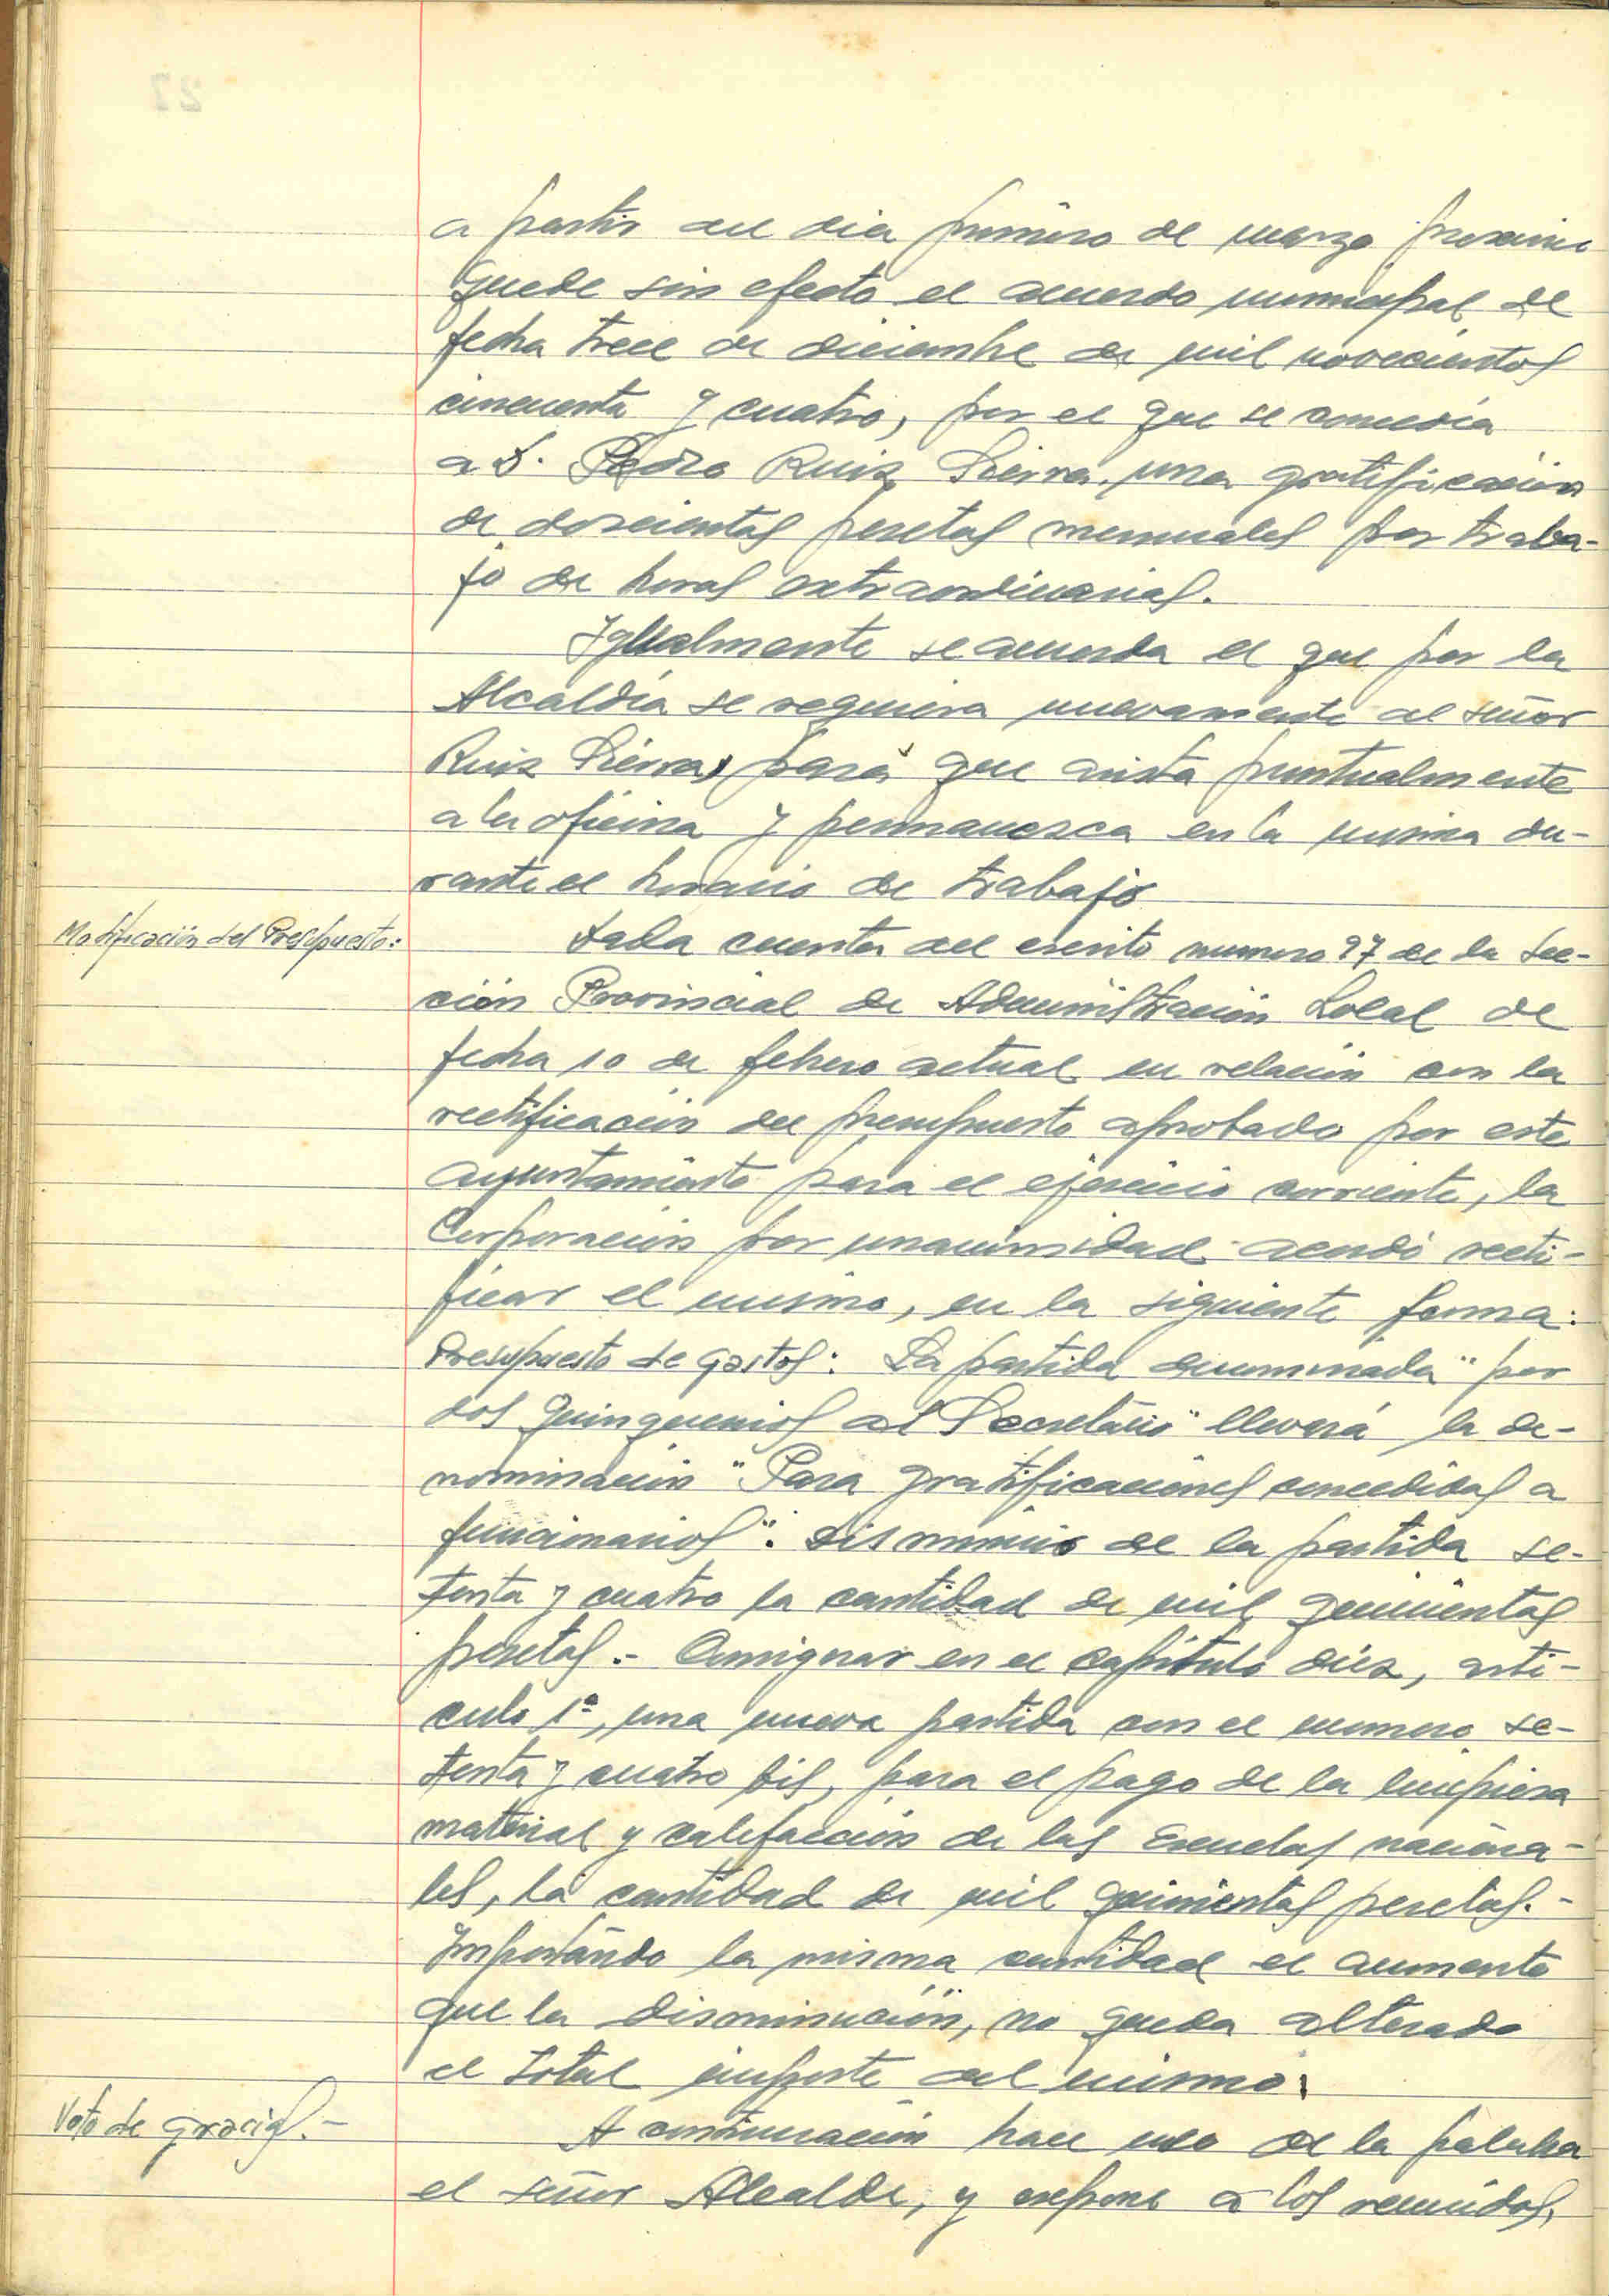 a partir del dia primero de marzo proximo
quede sin efecto el acuerdo municipal de
fecha trece de diciembre de mil novecientos
cincuenta y cuatro, por el que se concedía
a D. Pedro Ruiz Sierra, una gratificación
de doscientas pesetas mensuales por traba-
jo de horas extraordinarias.
Igualmente se acuerda el que por la
Alcaldía se requiera nuevamente al señor
Ruiz Sierra, para que asista puntualmente
a la oficina y permanezca en la misma du-
rante el horario de trabajo
Modificación del Presupuesto:
Dada cuenta del escrito numero 97 de la Sec-
ción Provincial de Administración Local de
fecha 10 de febrero actual en relación con la
rectificación del presupuesto aprobado por este
ayuntamiento para el ejercicio corriente, la
Corporación por unanimidad acordó recti-
ficar el mismo, en la siguiente forma:
Presupuesto de gastos: La partida denominada "por
dos quinquenios al Secretario" llevará la de-
nominación "Para gratificaciones concedidas a
funcionarios". Disminuir de la partida se-
tenta y cuatro la cantidad de mil quinientas
pesetas.- Consignar en el capítulo diez, arti-
culo 1º, una nueva partida con el numero se-
tenta y cuatro bis, para el pago de la limpieza
material y calefacción de las Escuelas naciona-
les, la cantidad de mil quinientas pesetas.-
Importando la misma cantidad el aumento
que la disminución, no queda alterado
el total importe del mismo.
Voto de gracias.-
A continuación hace uso de la palabra
el señor Alcalde, y expone a los reunidos,
27